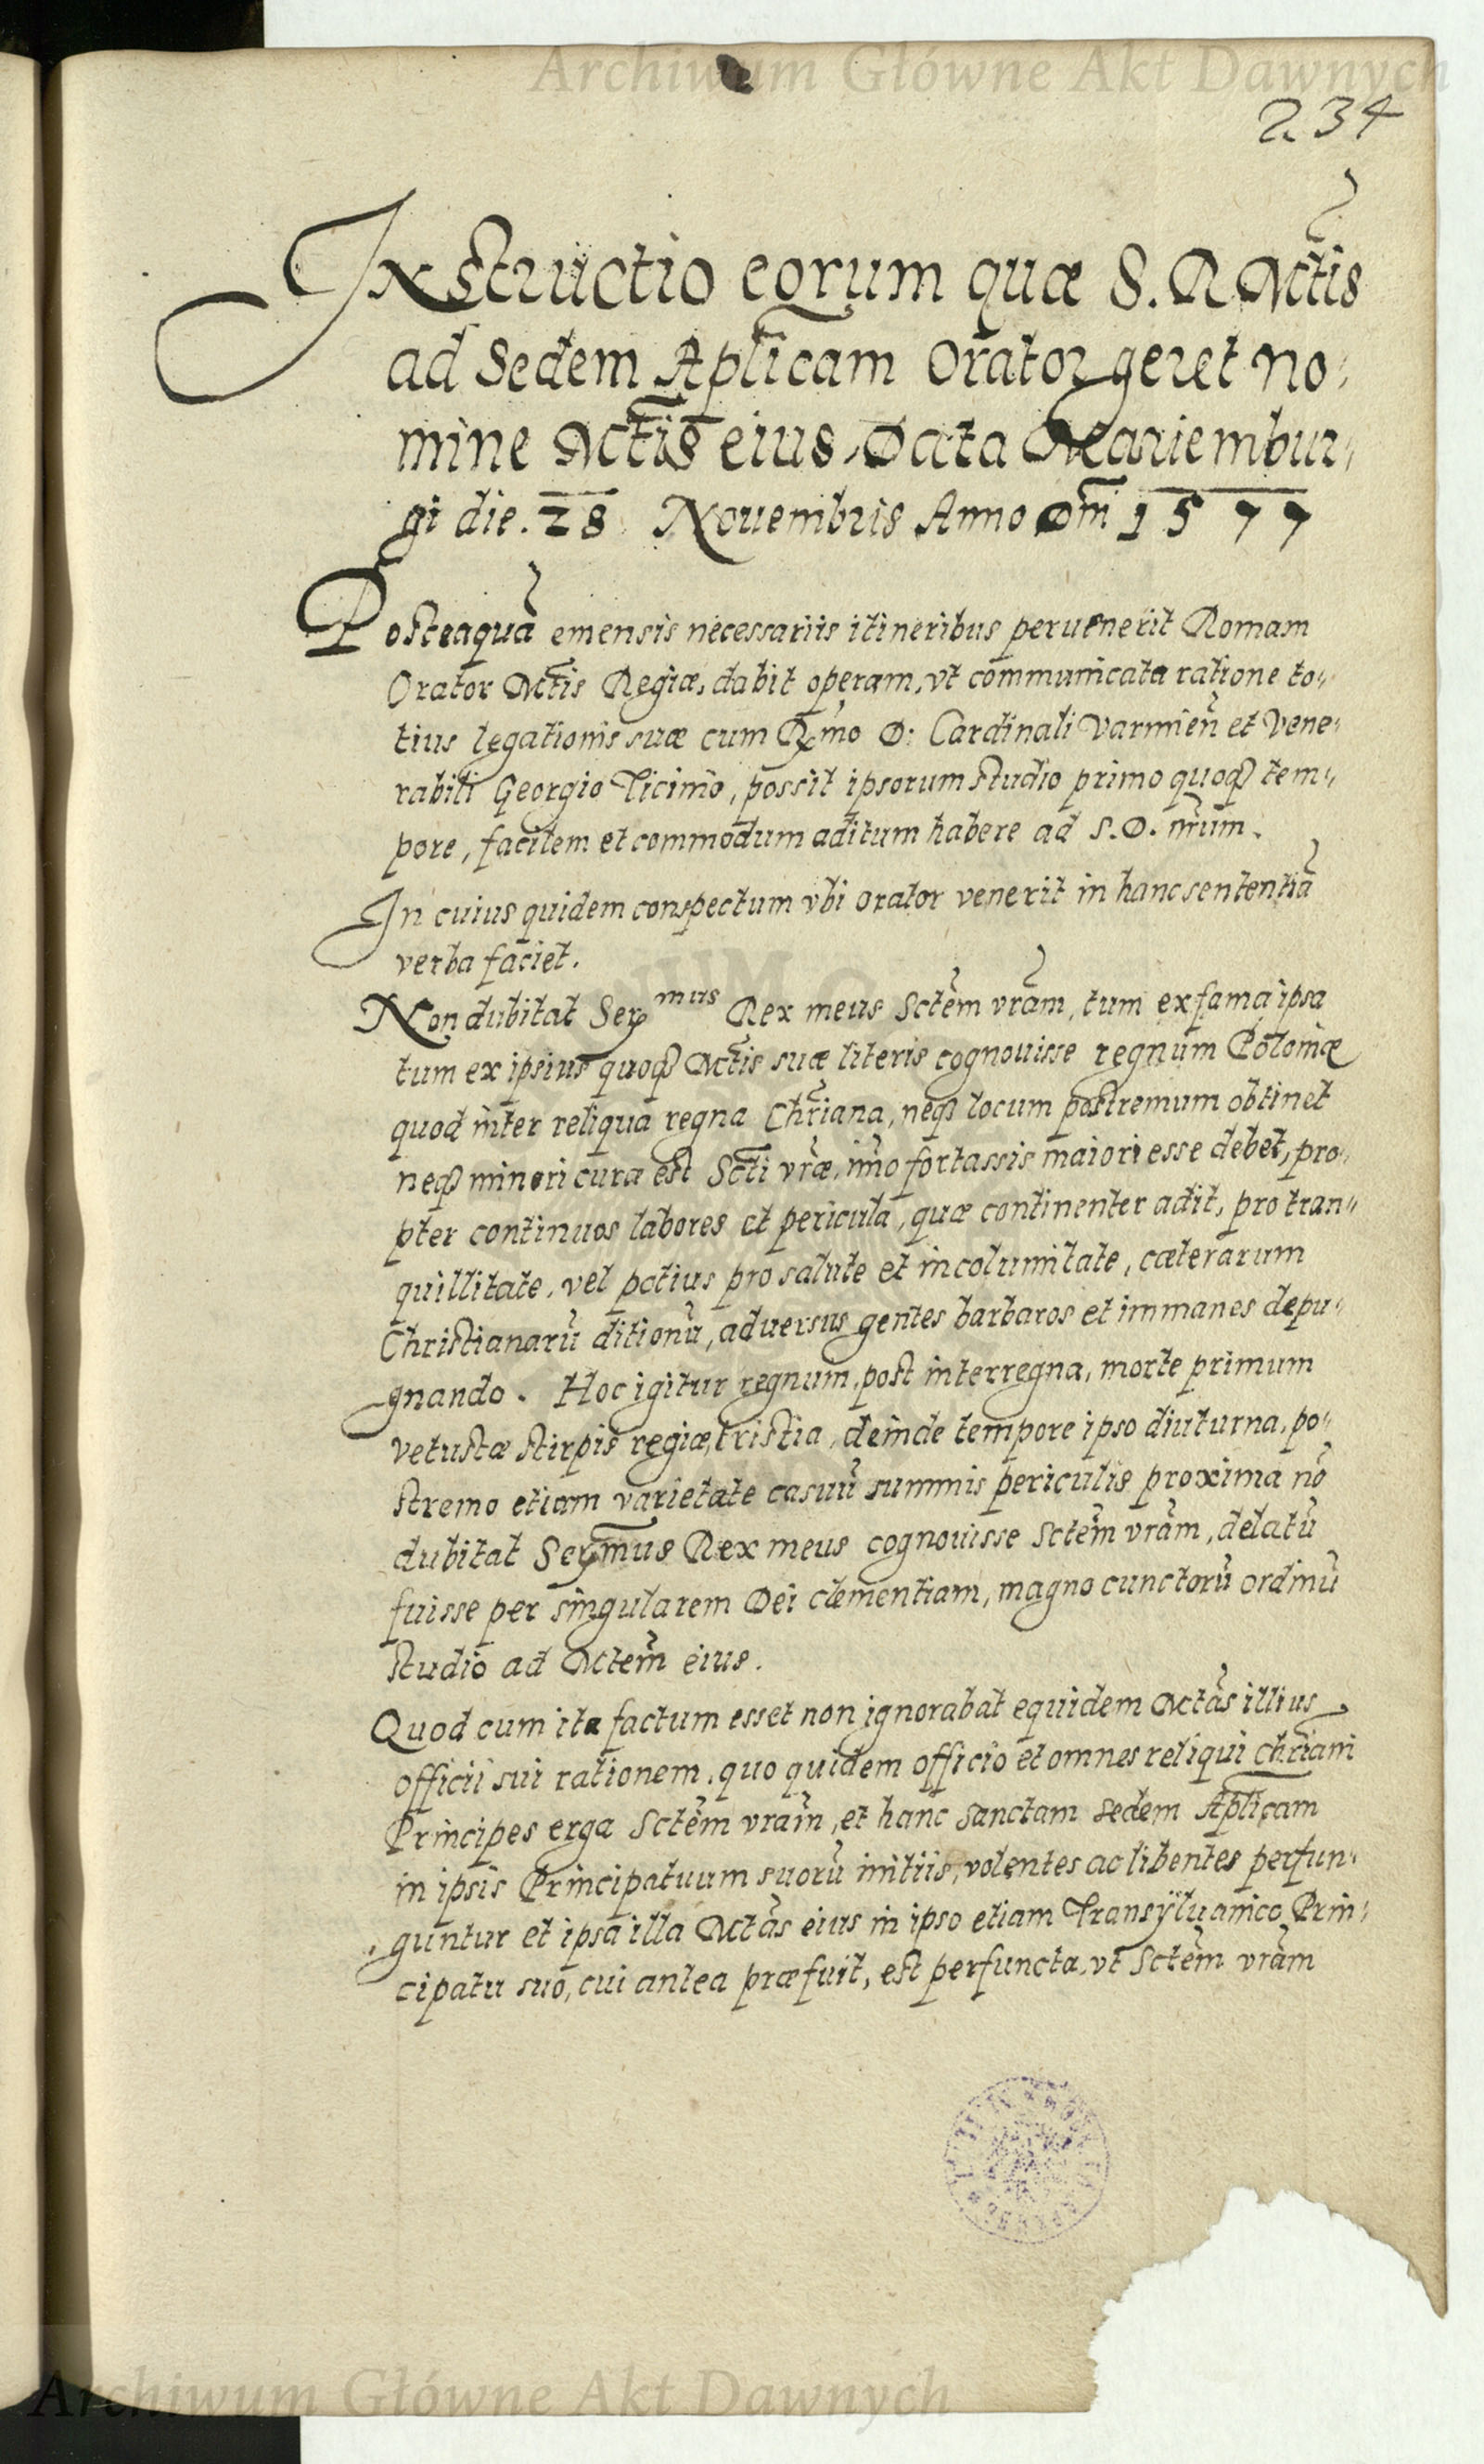 Archiwum Główne Akt Dawnych
234
Instructio eorum quæ S. R Mctis
ad Sedem Aplicam Orator geret no,
mine Mctis eius, Data Mariembur,
gi die. 28 Novembris Anno Dm̃ 1577
Posteaquã emensis necessariis itineribus pervenerit Romam
Orator Mctis Regiæ, dabit operam, vt communicata ratione to,,
tius legationis suæ cum Rmo D: Cardinali Varmieñ et Vene,
rabili Georgio Ticinio, possit ipsorum studio primo quoq3 tem,,
pore, facilem et commodum aditum habere ad S. D. nrum.
In cuius quidem conspectum vbi orator venerit in hanc sententiã
verba faciet.
Non dubitat Sermus Rex meus Sctem vram, tum ex fama ipsa
tum ex ipsius quoq3 Mctis suæ literis cognouisse regnum Poloniæ
quod inter reliqua regna Chriana, neq3 locum postremum obtinet
neq3 minori cura est Scti vræ, imo fortassis maiori esse debet, pro,
pter continuos labores et pericula, quæ continenter adit, pro tran,,
quillitate, vel potius pro salute et incolumitate, cæterarum
Christianarũ ditionũ, aduersus gentes barbaros et immanes depu,,
gnando. Hoc igitur regnum, post interregna, morte primum
vetustæ stirpis regiæ, tristia, deinde tempore ipso diuturna, po,,
stremo etiam varietate casuũ summis periculis proxima nõ
dubitat Sermus Rex meus cognouisse Sctem vram, delatũ
fuisse per singularem Dei clementiam, magno cunctorũ ordinũ
studio ad Mctem eius.
Quod cum ita factum esset non ignorabat equidem Mctas illius
officii sui rationem, quo quidem officio et omnes reliqui chriani
Principes erga Sctem vram, et hanc sanctam sedem Aplicam
in ipsis Principatuum suorũ initiis, volentes ac libentes perfun,
guntur et ipsa illa Mctas eius in ipso etiam Transÿluanico Prin,
cipatu suo, cui antea præfuit, est perfuncta, vt Sctem vram
Archiwum Główne Akt Dawnych